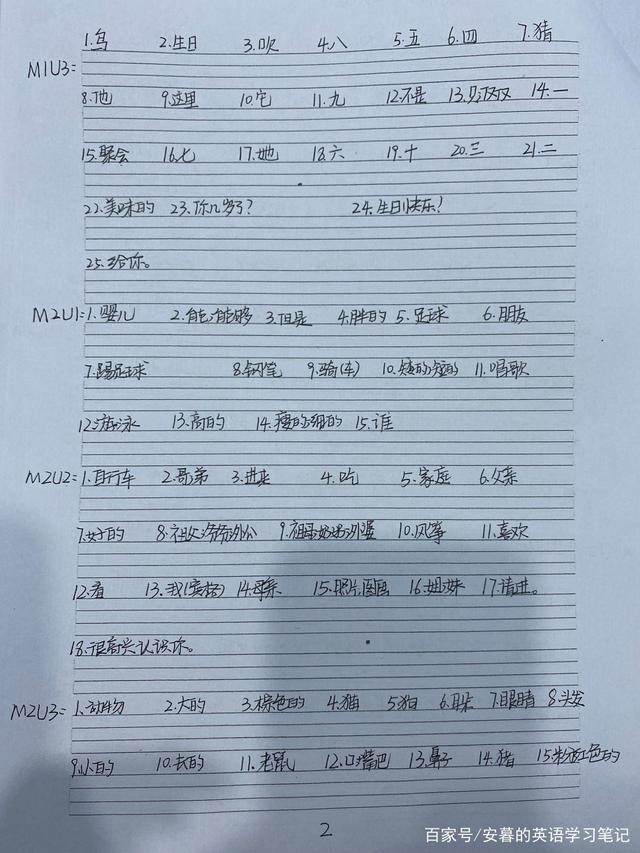 1.鸟 2.生日 3.吹 4.八 5.五 6.四 7.猪
M1U3=
8.他 9.这里 10.它 11.九 12.不是 13. 14.一
15.聚会 16.七 17.她 18.六 19.十 20.三 21.二
22.美味的 23.你几岁了? 24.生日快乐!
25.给你。
M2U1=1.婴儿 2.能,能够 3.但是 4.胖的 5.足球 6.朋友
7.踢足球 8.钢笔 9.骑(车) 10.矮的,短的 11.唱歌
12.游泳 13.高的 14.瘦的,细的 15.谁
M2U2=1.自行车 2.哥,弟 3.进来 4.吃 5.家庭 6.父亲
7.好的 8.祖父,爷爷,外公 9.祖母,奶奶,外婆 10.风筝 11.喜欢
12.看 13.我(宾格) 14.母亲 15.照片,图画 16.姐,妹 17.请进。
18.很高兴认识你。
M2U3=1.动物 2.大的 3.棕色的 4.猫 5.狗 6.耳朵 7.眼睛 8.头发
9.小的 10.长的 11.老鼠 12.口,嘴巴 13.鼻子 14.猪 15.粉红色的
2
百家号/安暮的英语学习笔记